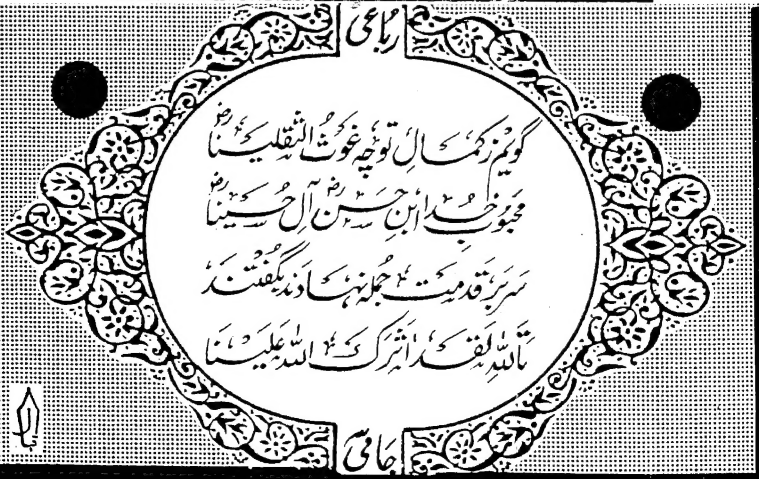 رُباعی
گویم زکمالِ تو چہ غوثُ الثقلینا رض
محبوبِ خُدا ابنِ حسن رض آلِ حُسینا رض
سر بر قدمیت جُملہ نہادند بگُفتند
تَاللّٰہِ لَقَد اٰثَرَکَ اللّٰہُ عَلَینَا
جامی